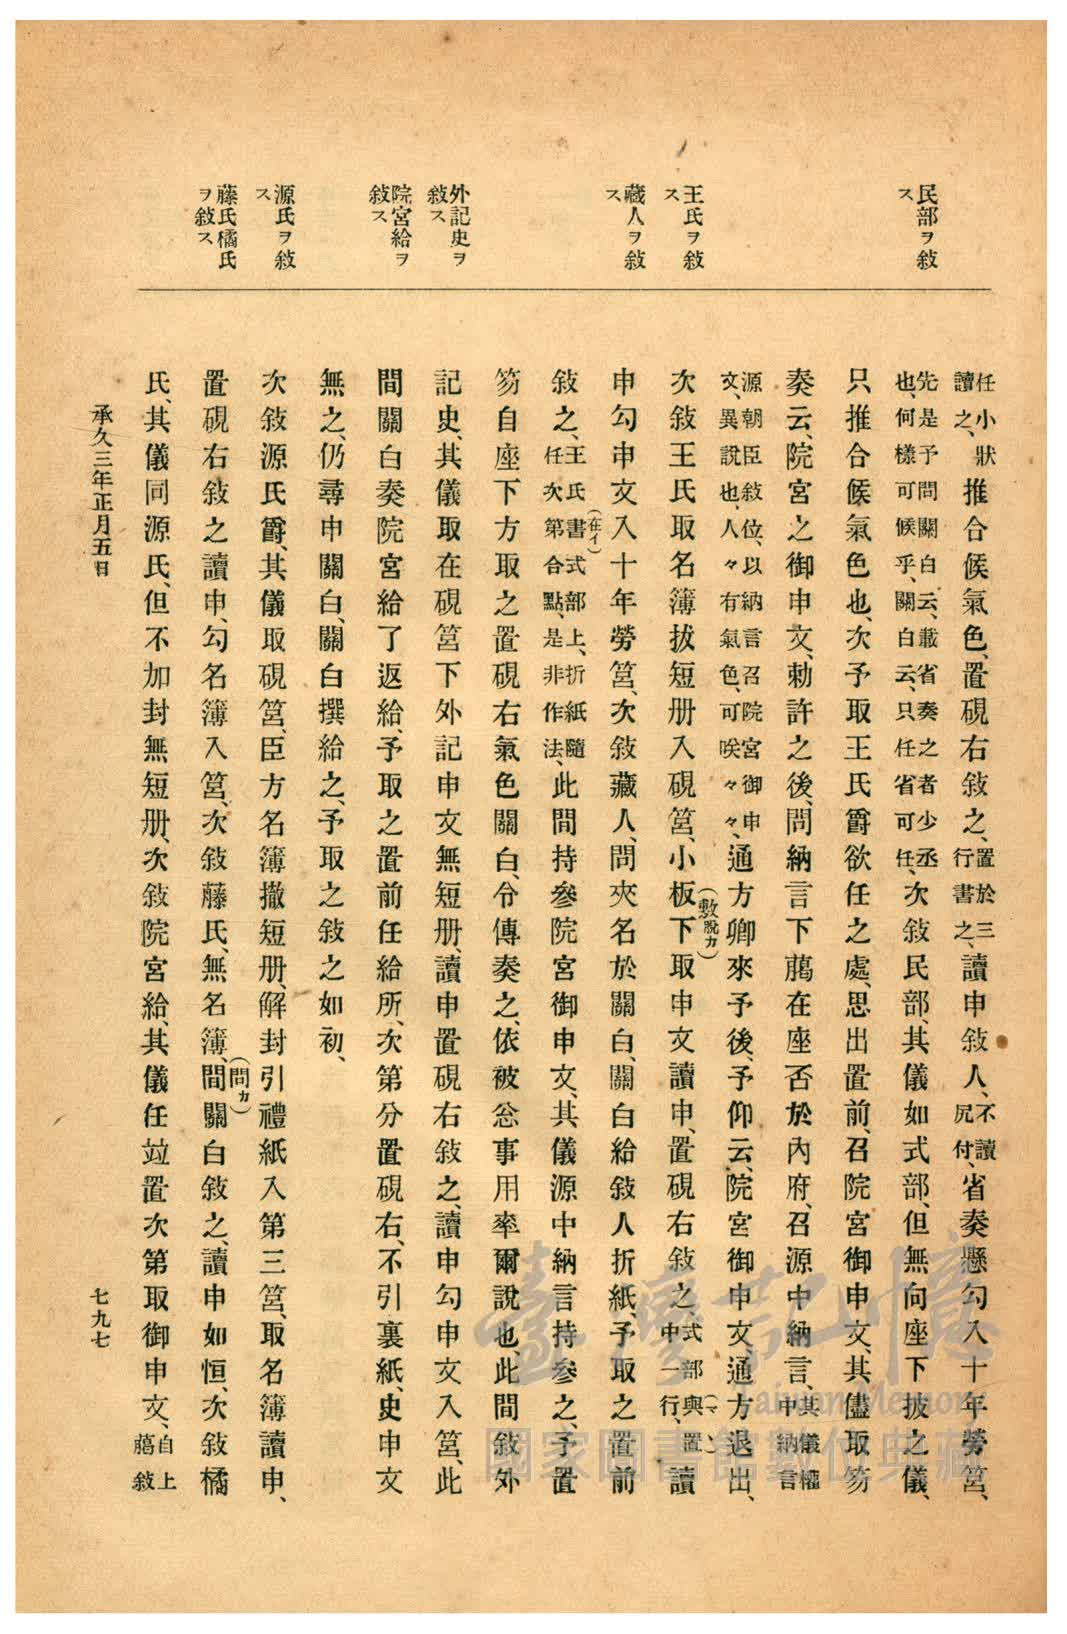 民部ヲ敍
ス
王氏ヲ敍
ス
藏人ヲ敍
ス
外記史ヲ
敍ス
院宮給ヲ
敍ス
源氏ヲ敍
ス
藤氏橘氏
ヲ敍ス
任小狀讀之、推合候氣色、置硯右敍之、置於三行書之、讀申敍人、不讀尻付、省奏懸勾入十年勞筥、
先是予問關白云、載省奏之者少丞也、何樣可候乎、關白云、只任省可任、次敍民部、其儀如式部、但無向座下披之儀、
只推合候氣色也、次予取王氏爵欲任之處、思出置前、召院宮御申文、其儘取笏
奏云、院宮之御申文、勅許之後、問納言下﨟在座否於內府、召源中納言、其儀權中納言
源朝臣敍位、以納言召院宮御申文、異說也、人々有氣色、可咲々々、通方卿來予後、予仰云、院宮御申文、通方退出、
次敍王氏取名簿拔短册入硯筥、小板下(敷脫カ)取申文讀申、置硯右敍之、式部與(マヽ)置中一行、讀
申勾申文入(在イ)十年勞筥、次敍藏人、問夾名於關白、關白給敍人折紙、予取之置前
敍之、王氏書式部上、折紙隨任次第合點、是非作法、此間持參院宮御申文、其儀源中納言持參之、予置
笏自座下方取之置硯右氣色關白、令傳奏之、依被忩事用率爾說也、此間敍外
記史、其儀取在硯筥下外記申文無短册、讀申置硯右敍之、讀申勾申文入筥、此
間關白奏院宮給了返給、予取之置前任給所、次第分置硯右、不引裏紙、史申文
無之、仍尋申關白、關白撰給之、予取之敍之如初、
次敍源氏爵、其儀取硯筥、臣方名簿撤短册、解封引禮紙入第三筥、取名簿讀申、
置硯右敍之讀申、勾名簿入筥、次敍藤氏、無名簿、間(問カ)關白敍之、讀申如恒、次敍橘
氏、其儀同源氏、但不加封無短册、次敍院宮給、其儀任竝置次第取御申文、自上﨟敍
承久三年正月五日
七九七
臺灣記憶
Taiwan Memory
國家圖書館數位典藏